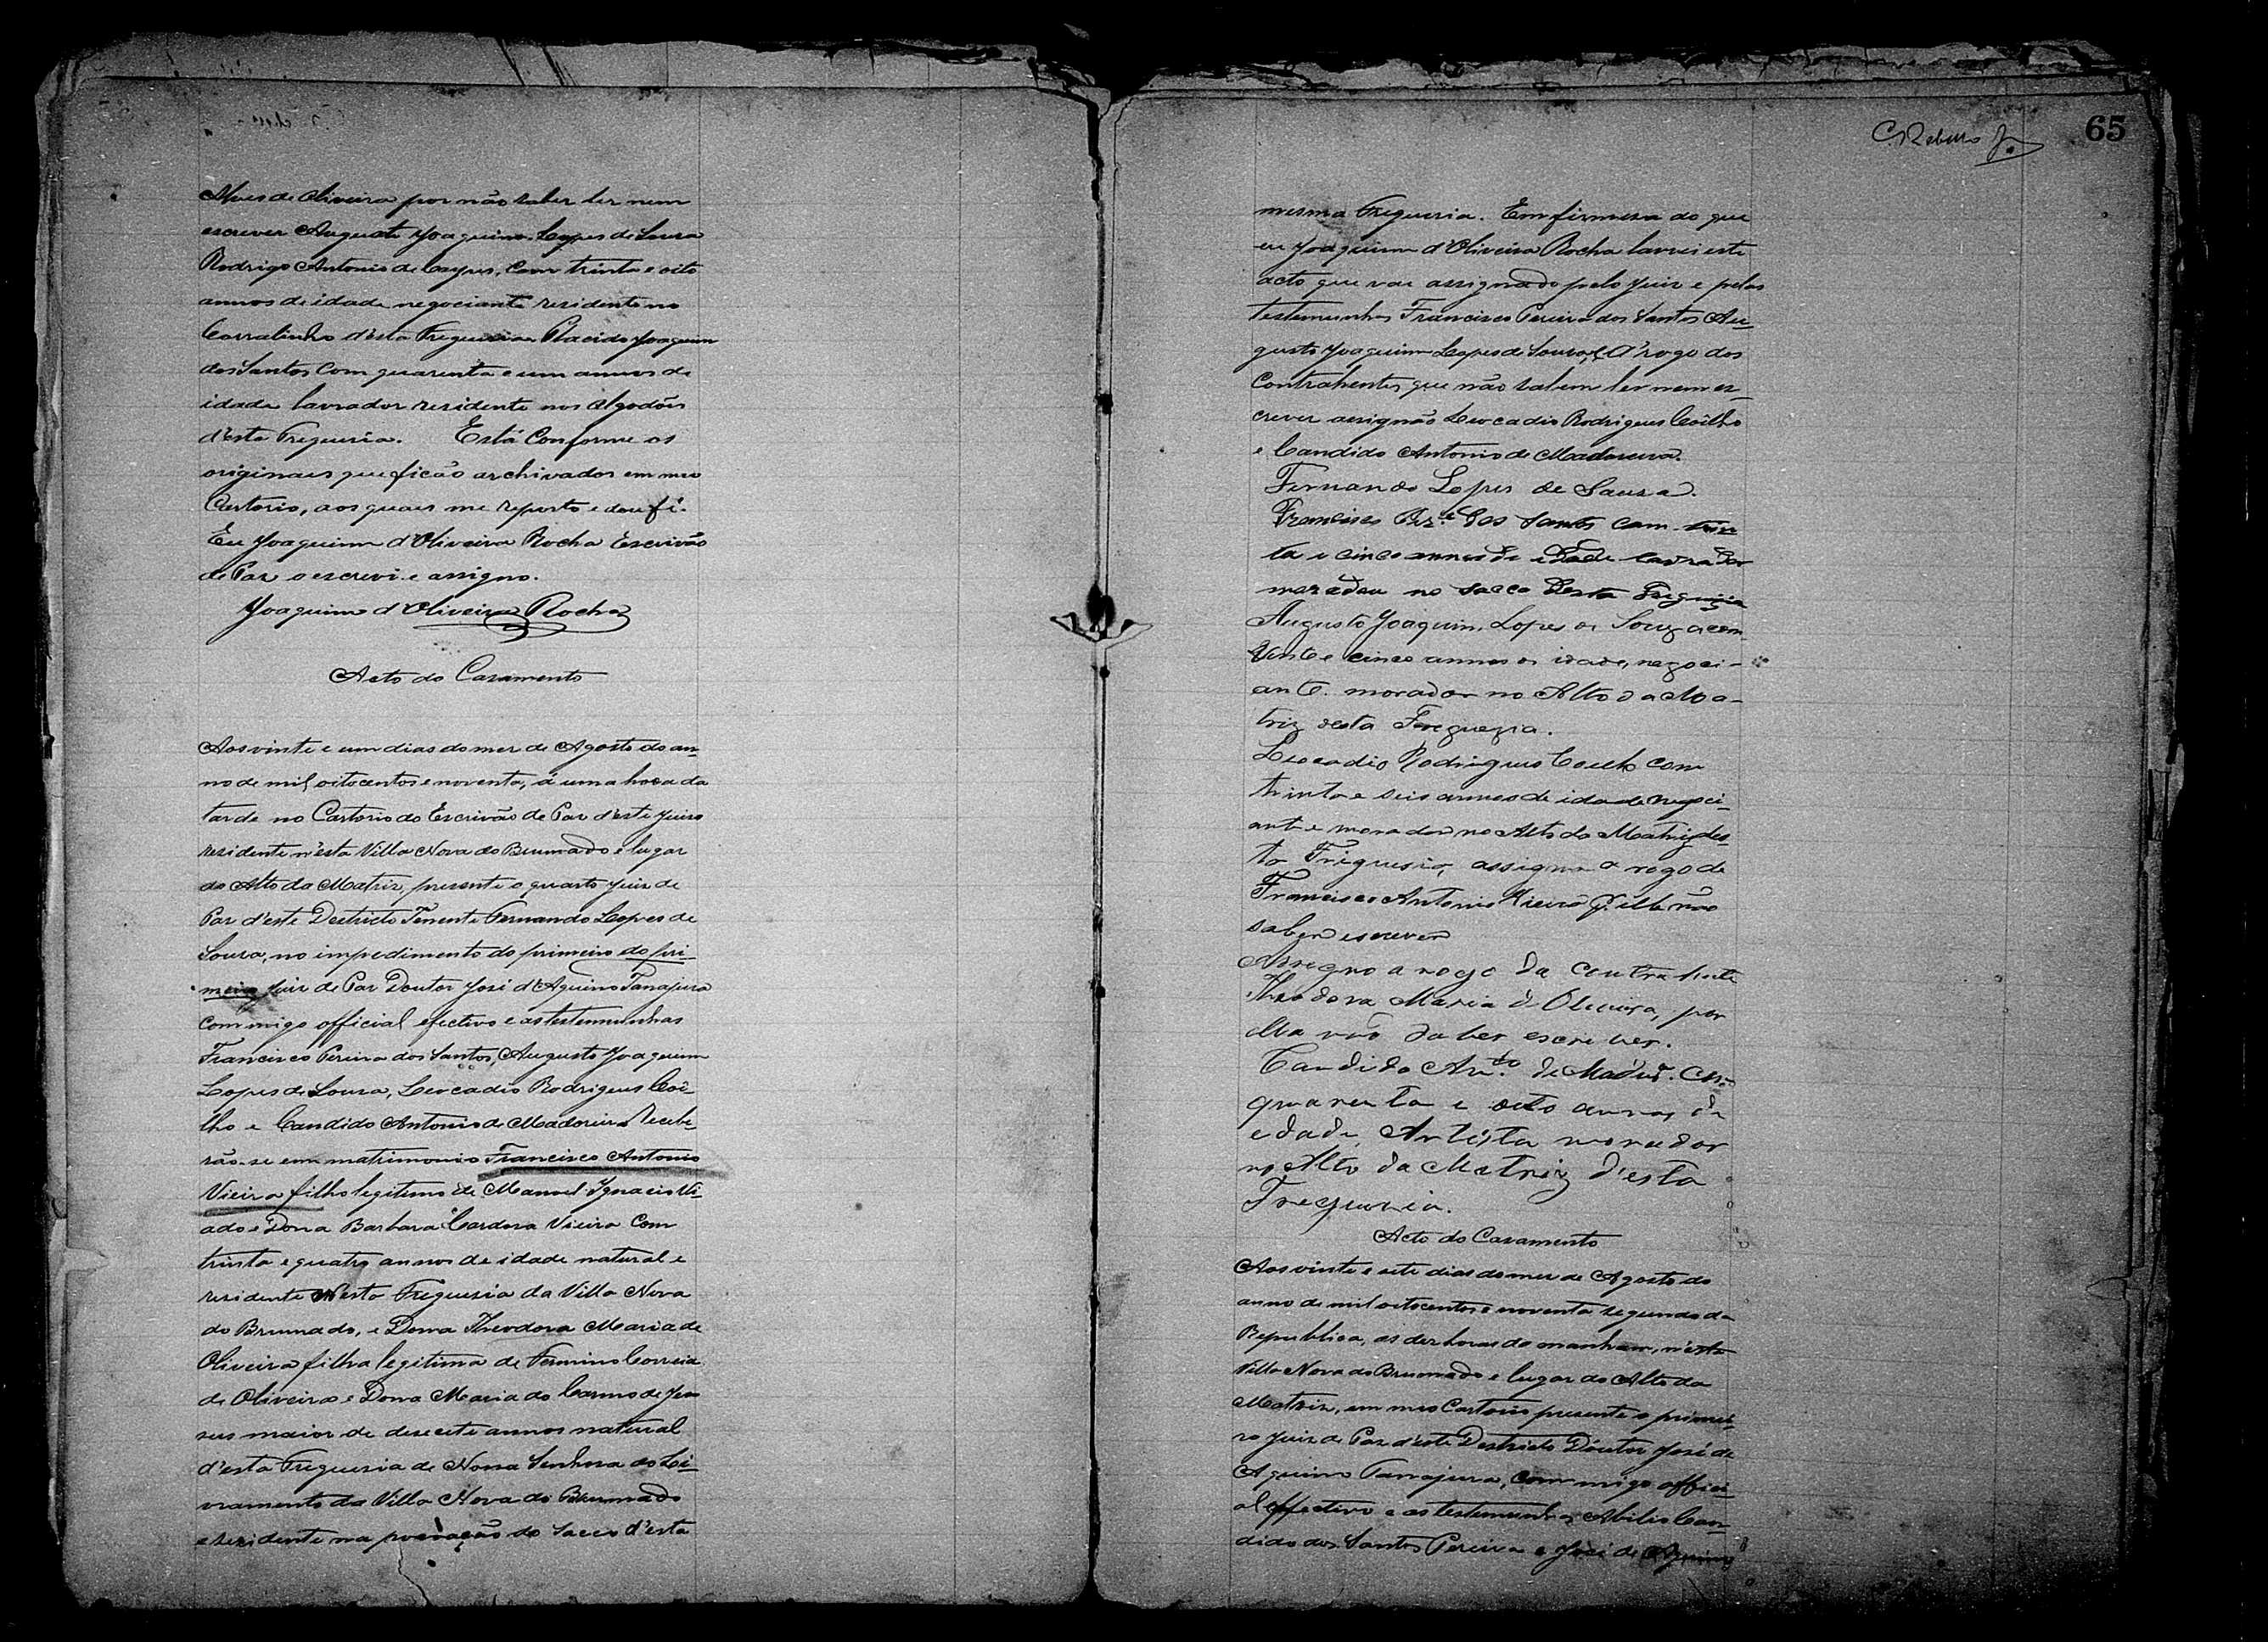 Alves de Oliveira por não saber ler nem
escrever Augusto Joaquim Lopes de Souza
Rodrigo Antonio de Lopes, com trinta e oito
annos de idade negociante residente no
Corralinho d'esta Freguesia Placido Joaquim
dos Santos com quarenta e um annos de
idade lavrador residente nos Algodões
d'esta Freguesia. Está Conforme os
originaes que ficão archivados em meu
Cartorio, aos quaes me reporto e dou fé.
Eu Joaquim d'Oliveira Rocha Escrivão
de Paz o escrevi e assigno.
Joaquim d'Oliveira Rocha
Acto do Casamento
Aos vinte e um dias do mez de Agosto do an-
no de mil oitocentos e noventa, á uma hora da
tarde no Cartorio do Escrivão de Paz d'este Juizo
residente n'esta Villa Nova do Brumado e lugar
do Alto da Matriz, presente o quarto juiz de
Paz d'este Destricto Tenente Fernando Lopes de
Souza, no impedimento do primeiro do pri-
meiro Juiz de Paz Doutor José d'Aquino Tanajura
commigo official efectivo e as testemunhas
Francisco Pereira dos Santos, Augusto Joaquim
Lopes de Souza, Leocadio Rodrigues Coê-
lho e Candido Antonio de Madoreira Recebe-
rão-se em matrimonio Francisco Antonio
Vieira filho legitimo de Manoel Ignacio Vi-
ado e Dona Barbara Cardosa Vieira com
trinta e quatro annos de idade natural e
residente Nesta Freguesia da Villa Nova
do Brumado, e Dona Theodora Maria de
Oliveira filha legitima de Fermino Correia
de Oliveira e Dona Maria do Carmo de Je-
sus maior de desecete annos natural
d'esta Freguesia de Nossa Senhora do Li-
vramento da Villa Nova do Brumado
e residente na povoação do Sacco d'esta
C. Rebello Jr
65
mesma Freguesia. Em firmesa do que
eu Joaquim d'Oliveira Rocha lavrei este
acto que vae assignado pelo Juiz e pelas
testemunhas Francisco Pereira dos Santos Au-
gusto Joaquim Lopes de Souza, e A'rogo dos
Contrahentes, que não sabem ler nem es-
crever assignão Leocadio Rodrigues Coêlho
e Candido Antonio de Madoreira.
Fernando Lopes de Sausa.
Francisco Pr.ª dos Santos cam trin
ta e cinco annos de edade lavrador
morador no Sacco desta Freguizia
Augusto Joaquim Lopes de Souza com
Vinte e cinco annos de idade, negoci-
ante. morador no Alto da Ma-
triz desta Freguezia.
Leocadio Rodrigues Coelho com
trinta e seis annos de idade negoci-
ante morador no Alto da Matriz des-
ta Freguesia, assigno a rogo de
Francisco Antonio Vieira p. elle não
saber escrever
Assegno a rogo da contrahente
Theodora Maria d'Oliveira, por
ella não saber escriver.
Candido An.to de Madur.ª Com
quarenta e oito annos de
edade, Artista morador
no Alto da Matriz d'esta
Freguezia.
Acto do Casamento
Aos vinte e sete dias do mez de Agosto do
anno de mil oitocentos e noventa segundo da
Republica, as dez horas da manham, n'esta
Villa Nova do Brumado e lugar do Alto da
Matriz, em meu Cartorio presente o primei-
ro juiz de Paz d'este Destricto Doutor José de
Aquino Tanajura, com migo offici-
al effectivo e as testemunhas Abilio Can-
dido dos Santos Pereira e José de Aquino